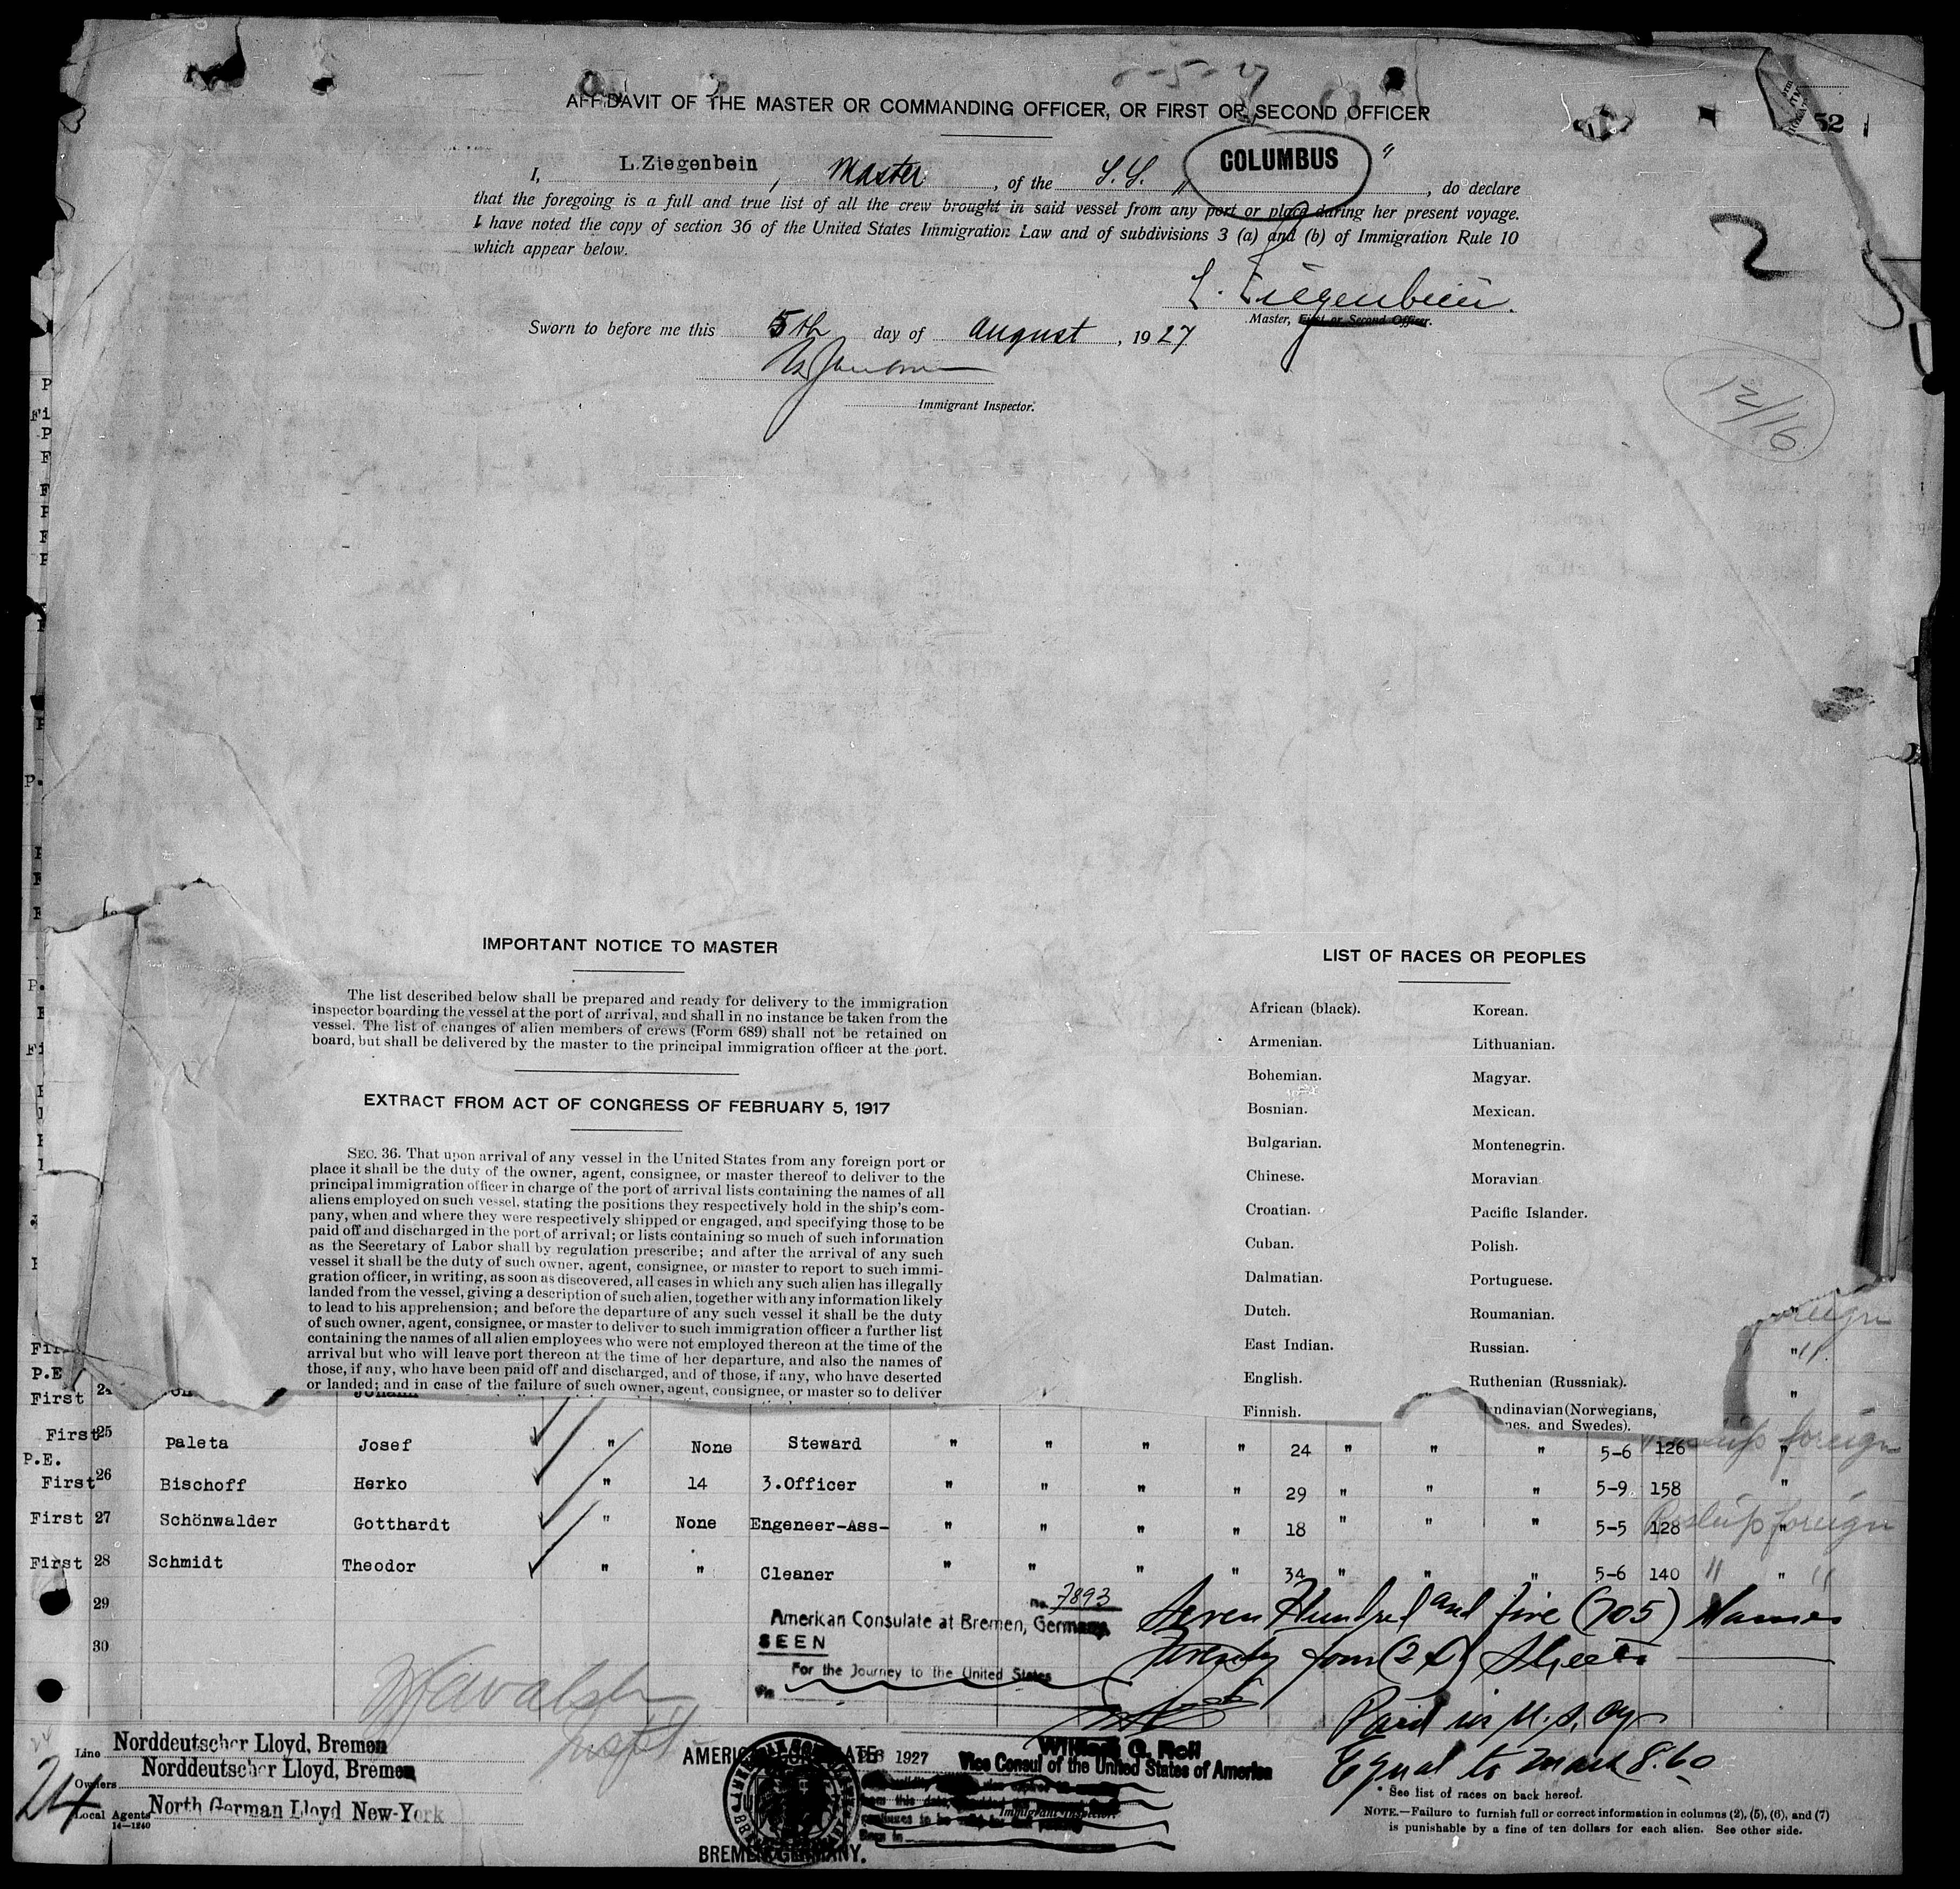 52
AFFIDAVIT OF THE MASTER OR COMMANDING OFFICER, OR FIRST OR SECOND OFFICER
I, L.Ziegenbein, Master, of the S.S. "COLUMBUS", do declare
that the foregoing is a full and true list of all the crew brought in said vessel from any port or place during her present voyage.
I have noted the copy of section 36 of the United States Immigration Law and of subdivisions 3 (a) and (b) of Immigration Rule 10
which appear below.
2
L. Ziegenbein
Master, First or Second Officer.
Sworn to before me this 5th day of August, 1927
Immigrant Inspector.
12/16
IMPORTANT NOTICE TO MASTER
The list described below shall be prepared and ready for delivery to the immigration
inspector boarding the vessel at the port of arrival, and shall in no instance be taken from the
vessel. The list of changes of alien members of crews (Form 689) shall not be retained on
board, but shall be delivered by the master to the principal immigration officer at the port.
EXTRACT FROM ACT OF CONGRESS OF FEBRUARY 5, 1917
SEC. 36. That upon arrival of any vessel in the United States from any foreign port or
place it shall be the duty of the owner, agent, consignee, or master thereof to deliver to the
principal immigration officer in charge of the port of arrival lists containing the names of all
aliens employed on such vessel, stating the positions they respectively hold in the ship's com-
pany, when and where they were respectively shipped or engaged, and specifying those to be
paid off and discharged in the port of arrival; or lists containing so much of such information
as the Secretary of Labor shall by regulation prescribe; and after the arrival of any such
vessel it shall be the duty of such owner, agent, consignee, or master to report to such immi-
gration officer, in writing, as soon as discovered, all cases in which any such alien has illegally
landed from the vessel, giving a description of such alien, together with any information likely
to lead to his apprehension; and before the departure of any such vessel it shall be the duty
of such owner, agent, consignee, or master to deliver to such immigration officer a further list
containing the names of all alien employees who were not employed thereon at the time of the
arrival but who will leave port thereon at the time of her departure, and also the names of
those, if any, who have been paid off and discharged, and of those, if any, who have deserted
or landed; and in case of the failure of such owner, agent, consignee, or master so to deliver
LIST OF RACES OR PEOPLES
African (black). Korean.
Armenian. Lithuanian.
Bohemian. Magyar.
Bosnian. Mexican.
Bulgarian. Montenegrin.
Chinese. Moravian
Croatian. Pacific Islander.
Cuban. Polish.
Dalmatian. Portuguese.
Dutch. Roumanian.
East Indian. Russian.
English. Ruthenian (Russniak).
Finnish. ndinavian (Norwegians,
nes, and Swedes).
P.E
First 24 Johann
First 25 Paleta Josef " None Steward " " " " 24 " " " 5-6 126 "
P.E.
First 26 Bischoff Herko " 14 3.Officer " " " " 29 " " " 5-9 158 "
First 27 Schönwalder Gotthardt " None Engeneer-Ass- " " " " 18 " " " 5-5 128 " Reship foreign
First 28 Schmidt Theodor " " Cleaner " " " " 34 " " " 5-6 140 " " "
29
30
No. 7893
American Consulate at Bremen, Germany
SEEN
For the Journey to the United States
Seven Hundred and five (705) Names
Twenty four (24) Sheets
Paid in U.S. Cy
Equal to Mark 8.60
Line Norddeutscher Lloyd, Bremen
Owners Norddeutscher Lloyd, Bremen
Local Agents North German Lloyd New-York
14—1240
24
AMERICAN CONSULATE
BREMEN, GERMANY.
1927
William G. Roll
Vice Consul of the United States of America
Immigrant Inspector.
* See list of races on back hereof.
NOTE.—Failure to furnish full or correct information in columns (2), (5), (6), and (7)
is punishable by a fine of ten dollars for each alien. See other side.